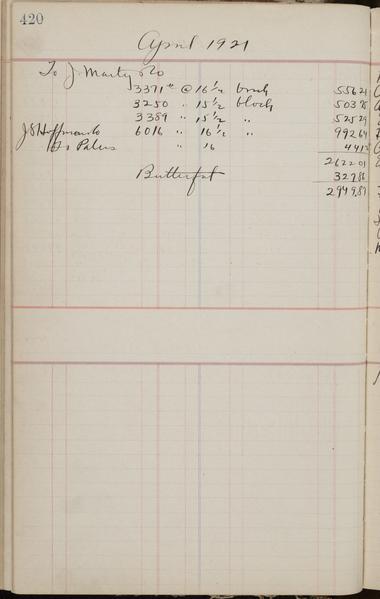 420
April 1921
To J. Marty Co
3371 # @ 16 1/2 brick 556 21
3250 " 15 1/2 block 503 75
3389 " 15 1/2 " 525 29
6016 " 16 1/2 " 992 64
" 16 44 12
2622 01
Butterfat 327 86
2949,87